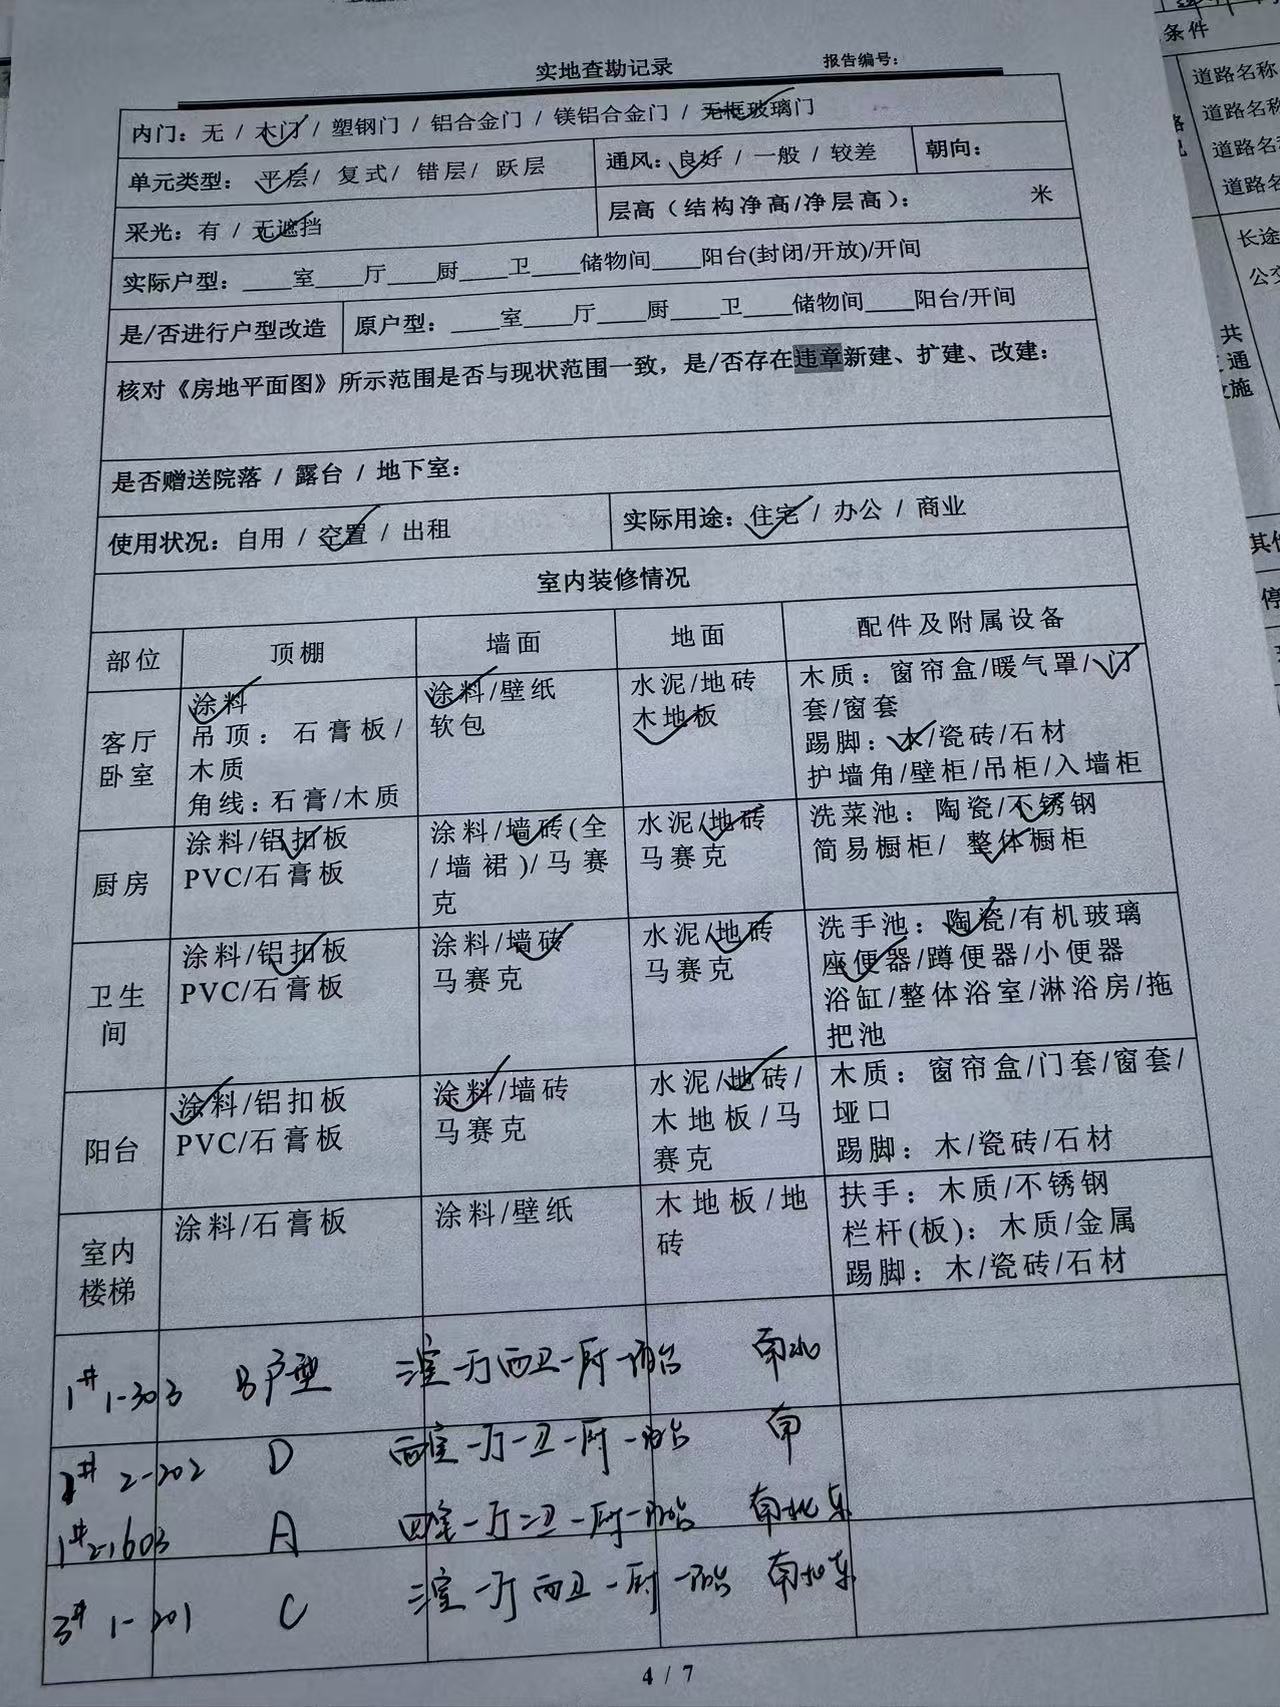 实地查勘记录
报告编号:
内门: 无 / 木门 / 塑钢门 / 铝合金门 / 镁铝合金门 / 无框玻璃门
单元类型: 平层/ 复式/ 错层/ 跃层
通风: 良好 / 一般 / 较差
朝向:
采光: 有 / 无遮挡
层高(结构净高/净层高): 米
实际户型:____室____厅____厨____卫____储物间____阳台(封闭/开放)/开间
是/否进行户型改造
原户型:____室____厅____厨____卫____储物间____阳台/开间
核对《房地平面图》所示范围是否与现状范围一致，是/否存在违章新建、扩建、改建:
是否赠送院落 / 露台 / 地下室:
使用状况: 自用 / 空置 / 出租
实际用途: 住宅 / 办公 / 商业
室内装修情况
部位
顶棚
墙面
地面
配件及附属设备
客厅
卧室
涂料
吊顶: 石膏板/
木质
角线:石膏/木质
涂料/壁纸
软包
水泥/地砖
木地板
木质: 窗帘盒/暖气罩/门
套/窗套
踢脚: 木/瓷砖/石材
护墙角/壁柜/吊柜/入墙柜
厨房
涂料/铝扣板
PVC/石膏板
涂料/墙砖(全
/墙裙)/马赛
克
水泥/地砖
马赛克
洗菜池: 陶瓷/不锈钢
简易橱柜/ 整体橱柜
卫生
间
涂料/铝扣板
PVC/石膏板
涂料/墙砖
马赛克
水泥/地砖
马赛克
洗手池: 陶瓷/有机玻璃
座便器/蹲便器/小便器
浴缸/整体浴室/淋浴房/拖
把池
阳台
涂料/铝扣板
PVC/石膏板
涂料/墙砖
马赛克
水泥/地砖/
木地板/马
赛克
木质: 窗帘盒/门套/窗套/
垭口
踢脚: 木/瓷砖/石材
室内
楼梯
涂料/石膏板
涂料/壁纸
木地板/地
砖
扶手: 木质/不锈钢
栏杆(板): 木质/金属
踢脚: 木/瓷砖/石材
1# 1-303 B户型 三室一厅两卫一厨一阳台 南北
2# 2-202 D 两室一厅一卫一厨一阳台 南
1# 2-1603 A 四室一厅二卫一厨一阳台 南北东
3# 1-201 C 三室一厅两卫一厨一阳台 南北东
4 / 7
条件
道路名称
道路名称
道路名
道路名
长途
公交
共
通
施
其他
停